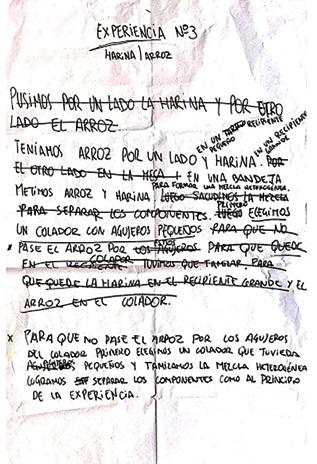 EXPERIENCIA Nº3
HARINA / ARROZ
PUSIMOS POR UN LADO LA HARINA Y POR OTRO
LADO EL ARROZ.
EN UN RECIPIENTE
PEQUEÑO
EN UN RECIPIENTE
GRANDE
TENIAMOS ARROZ POR UN LADO Y HARINA. POR
EL OTRO LADO EN LA MESA EN UNA BANDEJA
PARA FORMAR UNA MEZCLA HETEROGÉNEA.
METIMOS ARROZ Y HARINA LUEGO SACUDIMOS LA MEZCLA
PRIMERO
PARA SEPARAR LOS COMPONENTES. LUEGO ELEGIMOS
UN COLADOR CON AGUJEROS PEQUEÑOS PARA QUE NO
x PASE EL ARROZ POR LOS AGUJEROS PARA QUE QUEDE
COLADOR
EN EL TUVIMOS QUE TAMIZAR. PARA
QUE QUEDE LA HARINA EN EL RECIPIENTE GRANDE Y EL
ARROZ EN EL COLADOR.
x PARA QUE NO PASE EL ARROZ POR LOS AGUJEROS
DEL COLADOR PRIMERO ELEGIMOS UN COLADOR QUE TUVIERA
AGUJEROS PEQUEÑOS Y TAMIZAMOS LA MEZCLA HETEROGÉNEA
LOGRAMOS SEPARAR LOS COMPONENTES COMO AL PRINCIPIO
DE LA EXPERIENCIA.